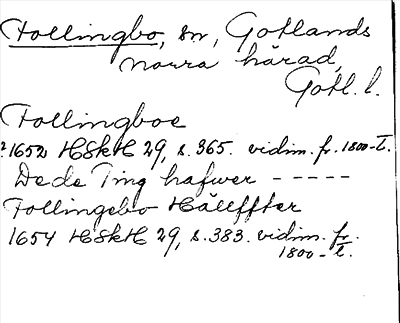 Follingbo, sn, Gotlands
norra härad,
Gotl. l.
Follingboe
?1652 HSkH 29, s. 365. vidim. fr. 1800-t.
Dede Ting hafwer - - - - -
Follingebo Hällffter
1654 HSkH 29, s. 383. vidim. fr.
1800-t.